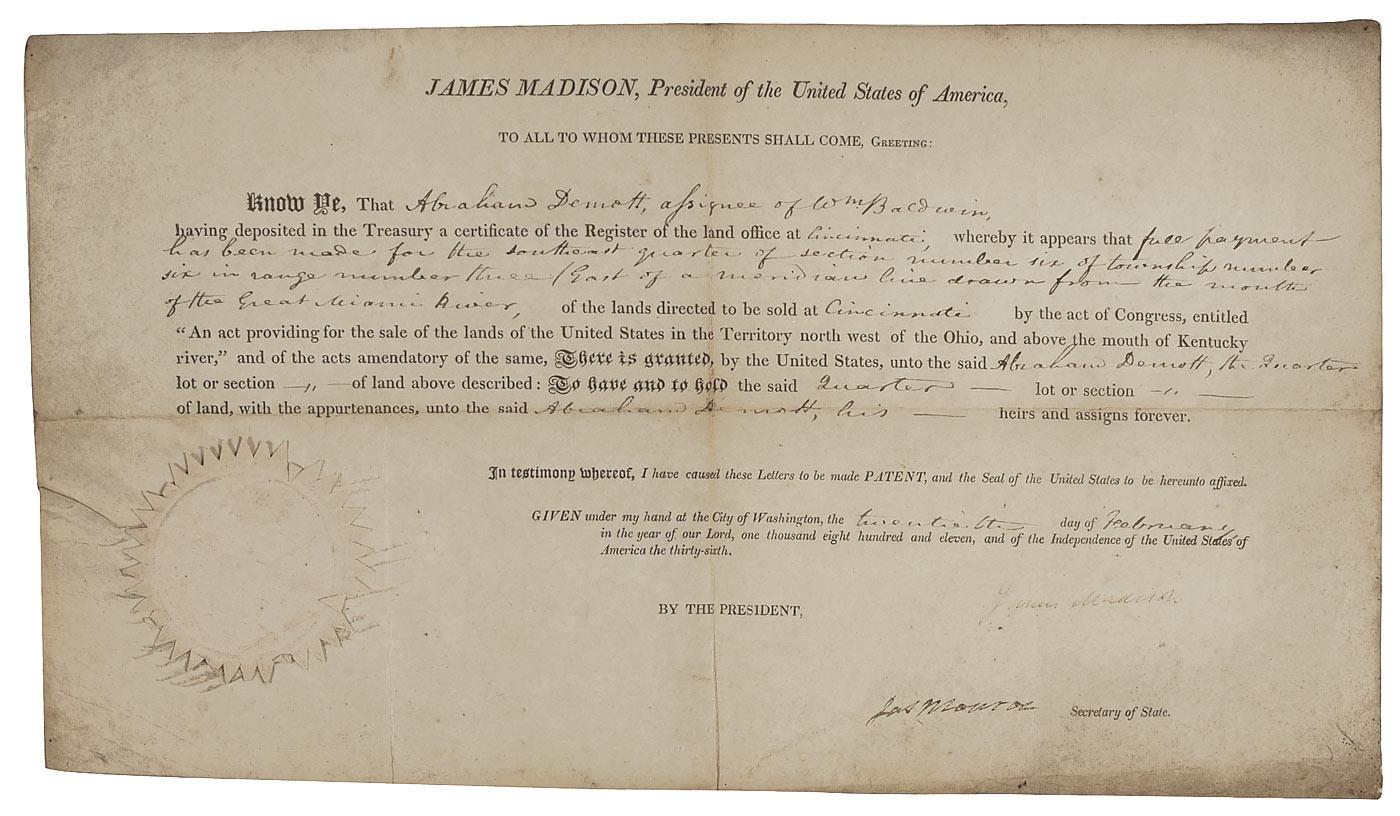 JAMES MADISON, President of the United States of America,
TO ALL TO WHOM THESE PRESENTS SHALL COME, GREETING:
Know Ye, That Abraham Demott, assignee of Wm Baldwin,
having deposited in the Treasury a certificate of the Register of the land office at Cincinnati, whereby it appears that full payment
has been made for the southeast quarter of section number six of township number
six in range number three (East of a meridian line drawn from the mouth
of the Great Miami River, of the lands directed to be sold at Cincinnati by the act of Congress, entitled
“An act providing for the sale of the lands of the United States in the Territory north west of the Ohio, and above the mouth of Kentucky
river,” and of the acts amendatory of the same, There is granted, by the United States, unto the said Abraham Demott, the Quarter
lot or section —„— of land above described: To have and to hold the said Quarter — lot or section —„—
of land, with the appurtenances, unto the said Abraham Demott, his — heirs and assigns forever.
In testimony whereof, I have caused these Letters to be made PATENT, and the Seal of the United States to be hereunto affixed.
GIVEN under my hand at the City of Washington, the twentieth day of February
in the year of our Lord, one thousand eight hundred and eleven, and of the Independence of the United States of
America the thirty-sixth.
James Madison
BY THE PRESIDENT,
Jas Monroe Secretary of State.